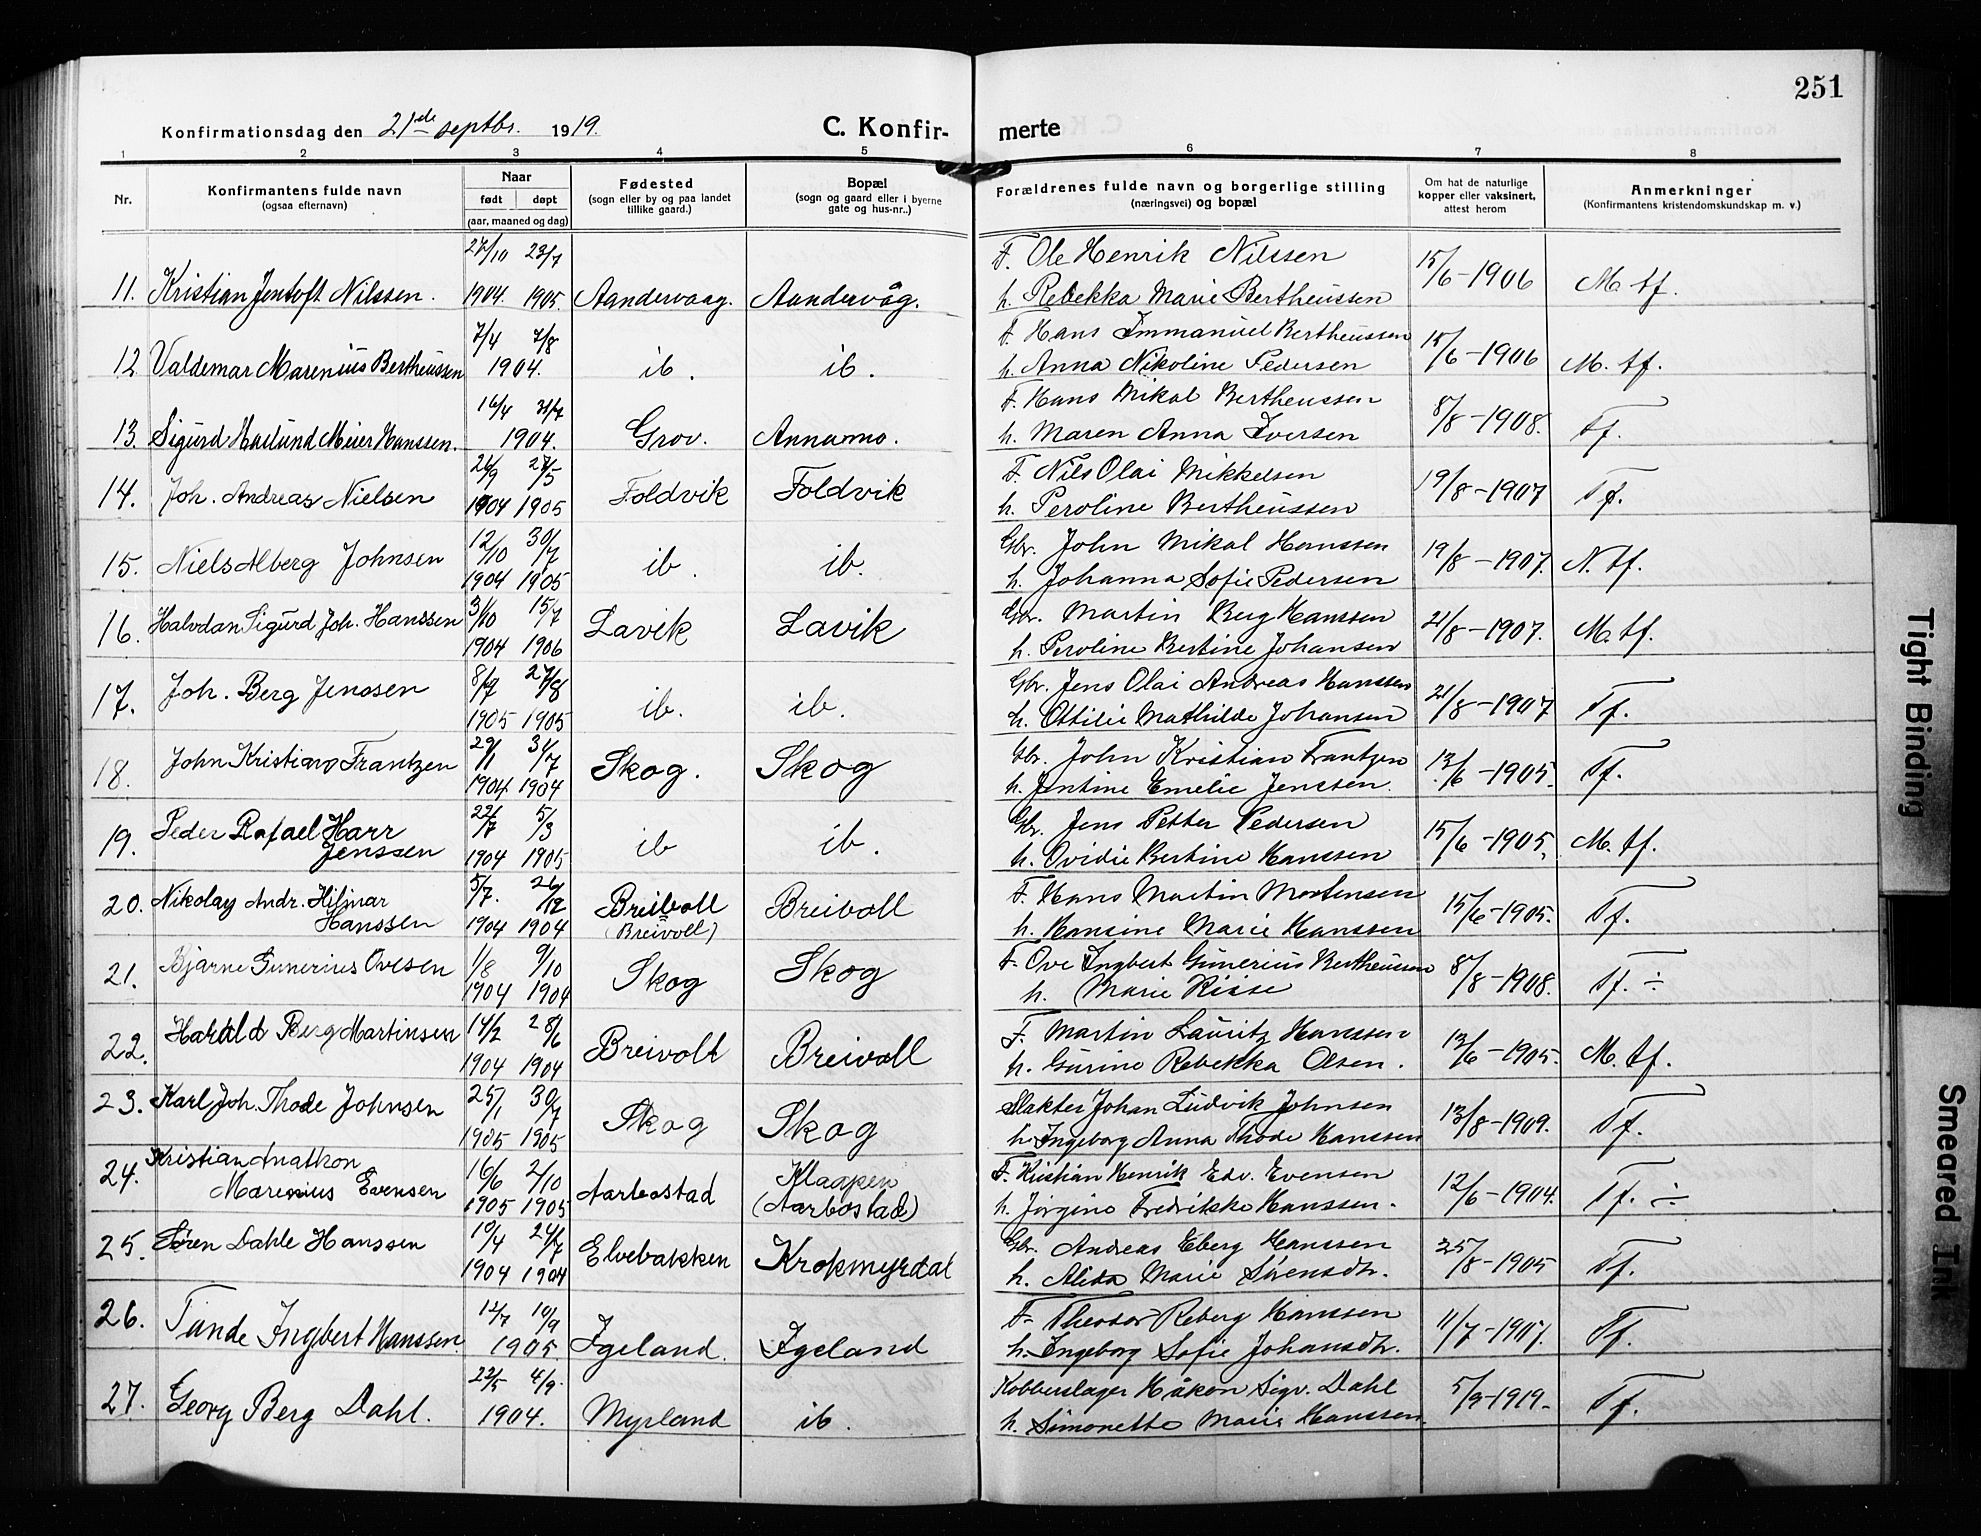 251
Konfirmationsdag den 21de septbr. 1919. C. Konfir- merte
1 2 3 4 5 6 7 8
Nr. Konfirmantens fulde navn (ogsaa efternavn) Naar født døpt (aar, maaned og dag) Fødested (sogn eller by og paa landet tillike gaard.) Bopæl (sogn og gaard eller i byerne gate og hus-nr..) Forældrenes fulde navn og borgerlige stilling (næringsvei) og bopæl Om hat de naturlige kopper eller vaksinert, attest herom Anmerkninger (Konfirmantens kristendomskundskap m. v.)
27/10 23/7 F. Ole Henrik Nilssen
11. Kristian Jentoft Nilssen. 1904. 1905. Aandervaag. Aandervåg. h. Rebekka Marie Bertheussen 15/6-1906 M. tf.
7/4 7/8 F. Hans Immanuel Bertheussen
12. Valdemar Marenius Bertheussen 1904. ib. ib. h. Anna Nikoline Pedersen 15/6-1906 M. tf.
16/4 31/7 F. Hans Mikal Bertheussen
13. Sigurd Haslund Meier Hanssen. 1904. Grov. Annamo. h. Maren Anna Iversen 8/8-1908. Tf.
26/9 27/5 F. Nils Olai Mikkelsen
14. Joh. Andreas Nielsen 1904 1905 Foldvik Foldvik h. Peroline Bertheussen 19/8-1907 Tf.
12/10 30/7 Gbr. John Mikal Hanssen
15. Niels Alberg Johnsen 1904 1905 ib. ib. h. Johanna Sofie Pedersen 19/8-1907. N. tf.
3/10 15/7 Gbr. Martin Berg Hanssen
16. Halvdan Sigurd Joh. Hanssen 1904 1906 Lavik Lavik h. Peroline Bertine Johansen 21/8-1907. M. tf.
8/7 27/8 Gbr. Jens Olai Andreas Hanssen
17. Joh. Berg Jenssen 1905 1905 ib. ib. h. Ottilie Mathilde Johansen 21/8-1907 Tf.
29/1 31/7 Gbr. John Kristian Frantzen
18. John Kristian Frantzen 1904 1904 Skog. Skog h. Jentine Emelie Jenssen. 13/6-1905. Tf.
22/7 5/3 Gbr. Jens Petter Pedersen
19. Peder Rafael Harr Jenssen 1904 1905 ib ib. h. Ovidie Bertine Hanssen 15/6-1905. M. tf.
5/7. 26/12 F. Hans Martin Mortensen
20. Nikolay Andr. Hilmar Hanssen 1904 1904 Breivoll (Breivoll) Breivoll h. Hansine Marie Hanssen 15/6-1905. Tf.
1/8 9/10 F. Ove Ingbert Gunerius Bertheussen
21. Bjarne Gunerius Ovesen 1904 1904 Skog Skog h. Marie Risse 8/8-1908. Tf. ÷
14/2 28/6 F. Martin Lauritz Hanssen
22. Harald Berg Martinsen 1904 1904 Breivoll Breivoll h. Gurine Rebekka Olsen. 13/6-1905. M. tf.
25/1 30/7 Slakter Johan Ludvik Johnsen
23. Karl Joh. Thode Johnsen 1905 1905 Skog Skog h. Ingeborg Anna Thode Hanssen 13/8-1909. Tf.
16/6 2/10 F. Kristian Henrik Edv. Evensen
24. Kristian Anatkon Marenius Evensen 1905 1905 Aarbostad Klaapen (Aarbostad) h. Jørgine Fredrikke Hanssen. 12/6-1904. Tf. ÷
10/4 24/7 Gbr. Andreas Eberg Hanssen
25. Søren Dahle Hanssen 1904 1904 Elvebakken Krokmyrdal h. Alida Marie Sørensdtr. 25/8-1905 Tf.
12/7 10/9 F. Theodor Reberg Hanssen
26. Tande Ingbert Hanssen 1905 Igeland. Igeland h. Ingeborg Sofie Johansdtr. 11/7-1907. Tf.
22/5 4/9. Kobberslager Håkon Sigv. Dahl
27. Georg Berg Dahl. 1904. Myrland ib. h. Simonette Marie Hanssen 5/9-1919. Tf.
Tight Binding
Smeared Ink